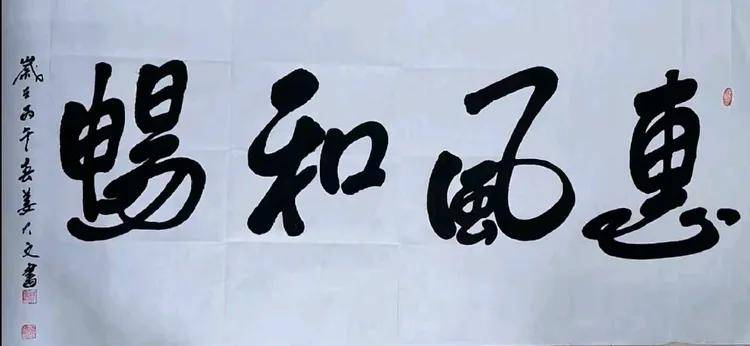 惠風和暢
歲在丙午春姜大文書